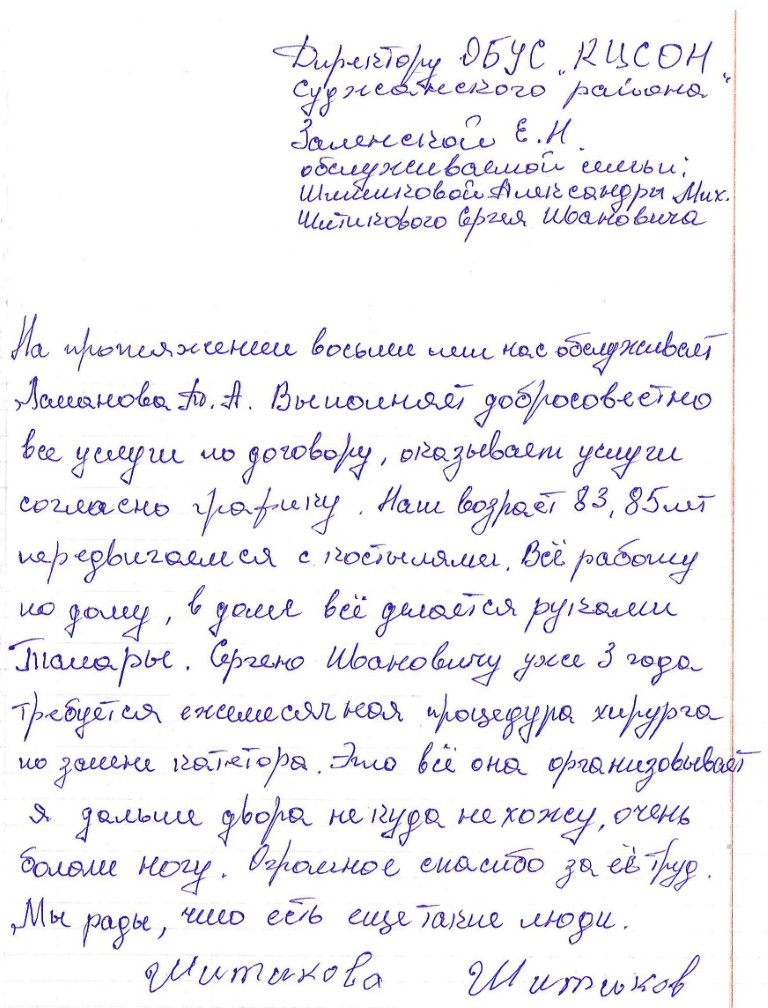 Директору ОБУС "КЦСОН"
Суджанского района
Заленской Е.Н.
обслуживаемой семьи:
Шитиковой Александры Мих.
Шитикового Сергея Ивановича
На протяжении восьми лет нас обслуживает
Ламанова Т. А. Выполняет добросовестно
все услуги по договору, оказывает услуги
согласно графику. Наш возраст 83, 85 лет
передвигаемся с костылями. Всё работу
по дому, в доме всё делается руками
Тамары. Сергею Ивановичу уже 3 года
требуется ежемесячная процедура хирурга
по замене катетора. Это всё она организовывает
я дальше двора не куда не хожу, очень
болят ногу. Огромное спасибо за её труд.
Мы рады, что есть еще такие люди.
Шитикова Шитиков